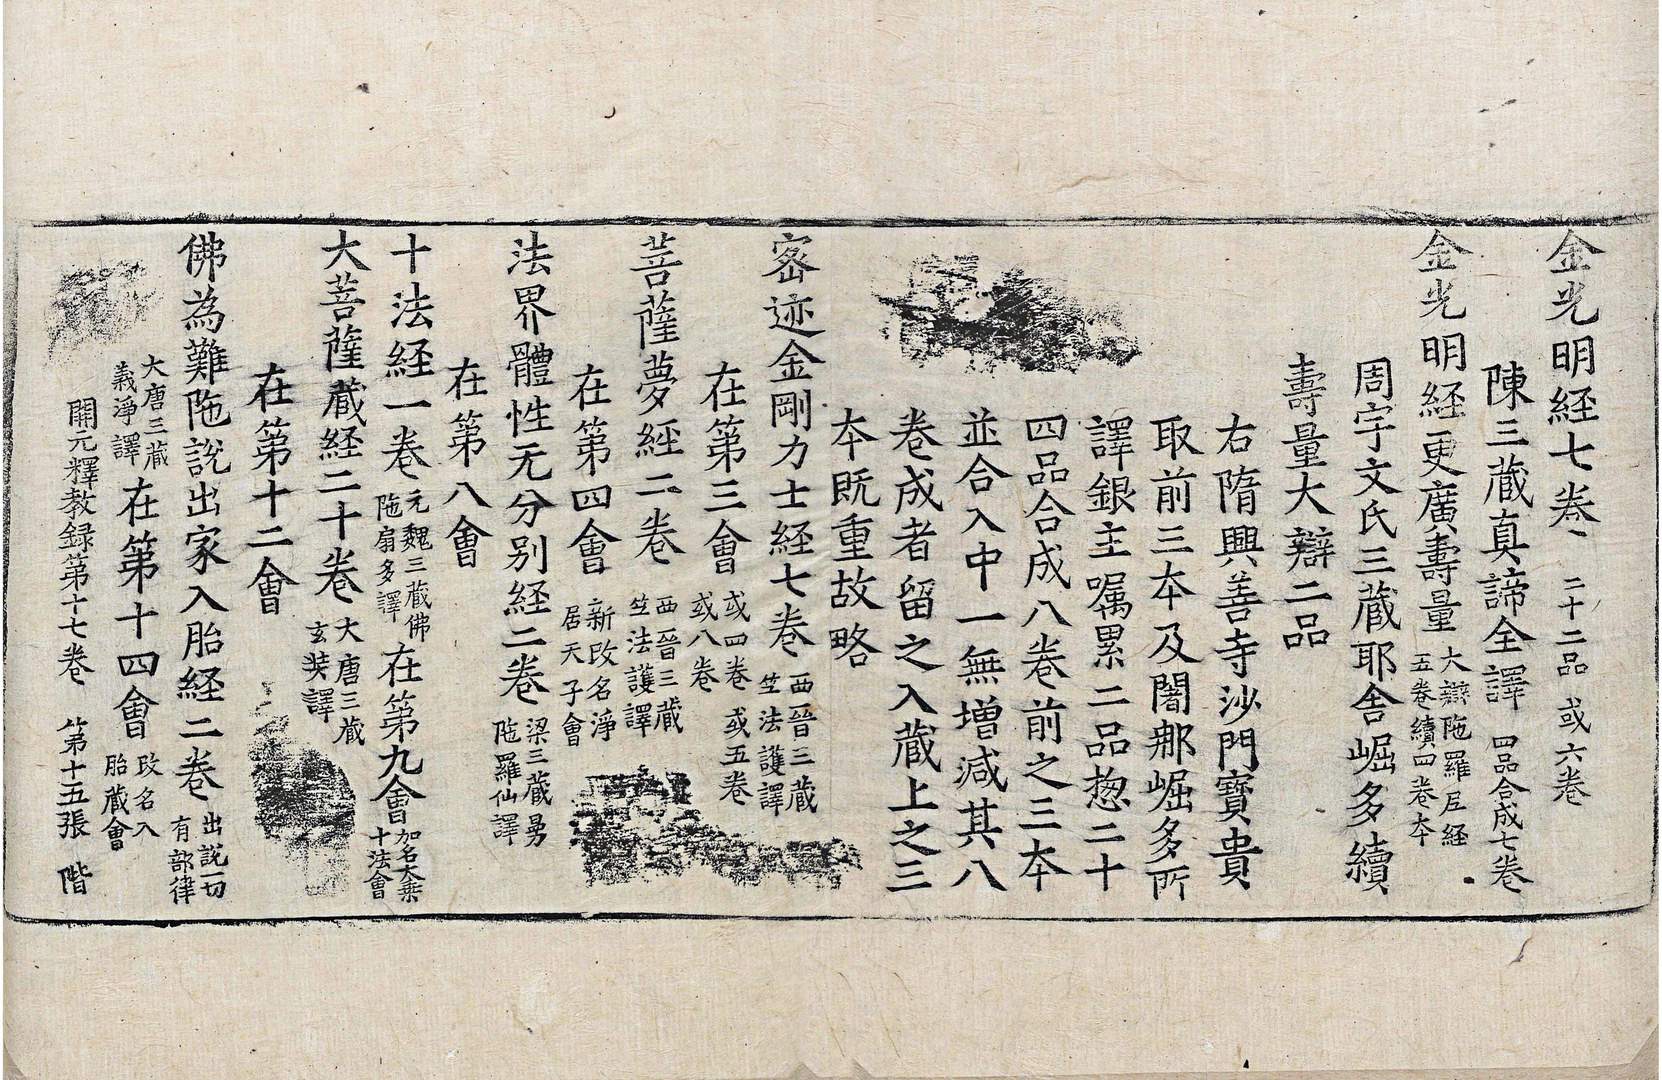 金光明経七卷 二十二品 或六卷
陳三蔵真諦全譯 四品合成七卷
金光明経更廣壽量 大辯陁羅尼経
五卷續四卷本
周宇文氏三蔵耶舍崛多續
壽量大辯二品
右隋興善寺沙門寶貴
取前三本及闍那崛多所
譯銀主嘱累二品惣二十
四品合成八卷前之三本
並合入中一無增減其八
卷成者留之入蔵上之三
本既重故略
宻迹金剛力士経七卷 西晉三蔵
竺法護譯
或四卷 或五卷
在第三會 或八卷
菩薩夢経二卷 西晉三蔵
竺法護譯
在第四會 新改名淨
居天子會
法界體性无分別経二卷 梁三蔵曼
陁羅仙譯
在第八會
十法経一卷 元魏三蔵佛
陁扇多譯 在第九會 加名大乗
十法會
大菩薩蔵経二十卷 大唐三蔵
玄奘譯
在第十二會
佛為難陁說出家入胎経二卷 出說一切
有部律
大唐三蔵
義淨譯 在第十四會 改名入
胎蔵會
開元釋教録第十七卷 第十五張 階